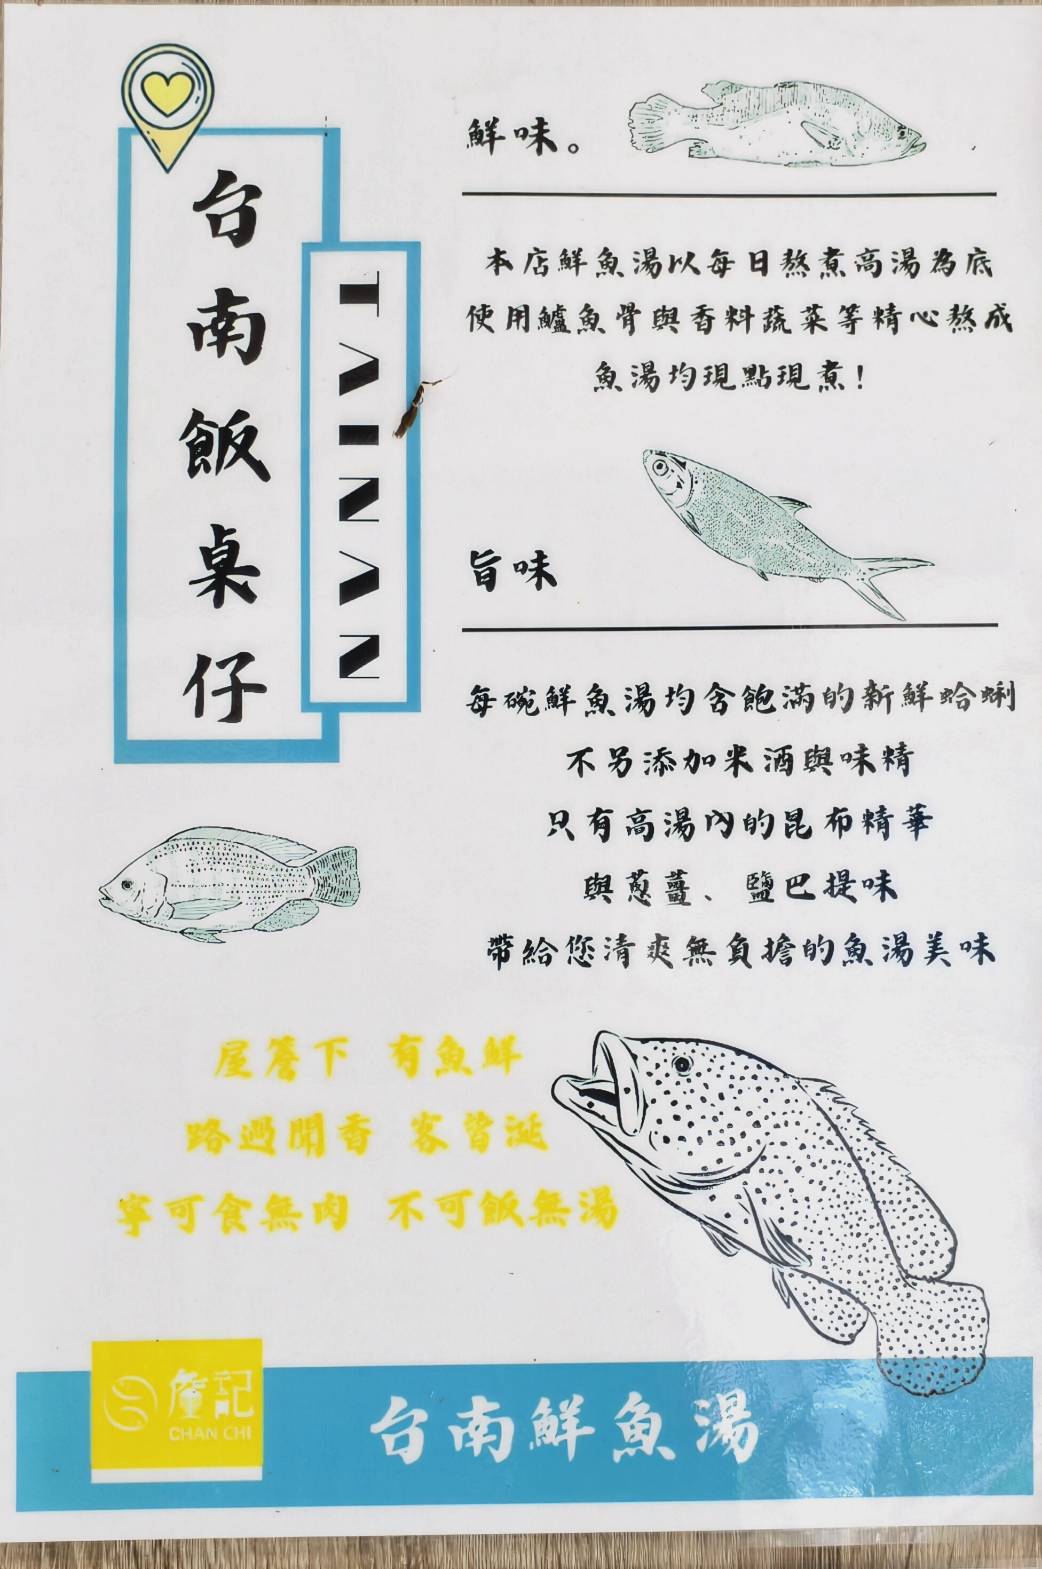 台南飯桌仔
TAINAN
鮮味。
本店鮮魚湯以每日熬煮高湯為底
使用鱸魚骨與香料蔬菜等精心熬成
魚湯均現點現煮！
旨味
每碗鮮魚湯均含飽滿的新鮮蛤蜊
不另添加米酒與味精
只有高湯內的昆布精華
與蔥薑、鹽巴提味
帶給您清爽無負擔的魚湯美味
屋簷下 有魚鮮
路過聞香 客皆涎
寧可食無肉 不可飯無湯
記
CHAN CHI
台南鮮魚湯